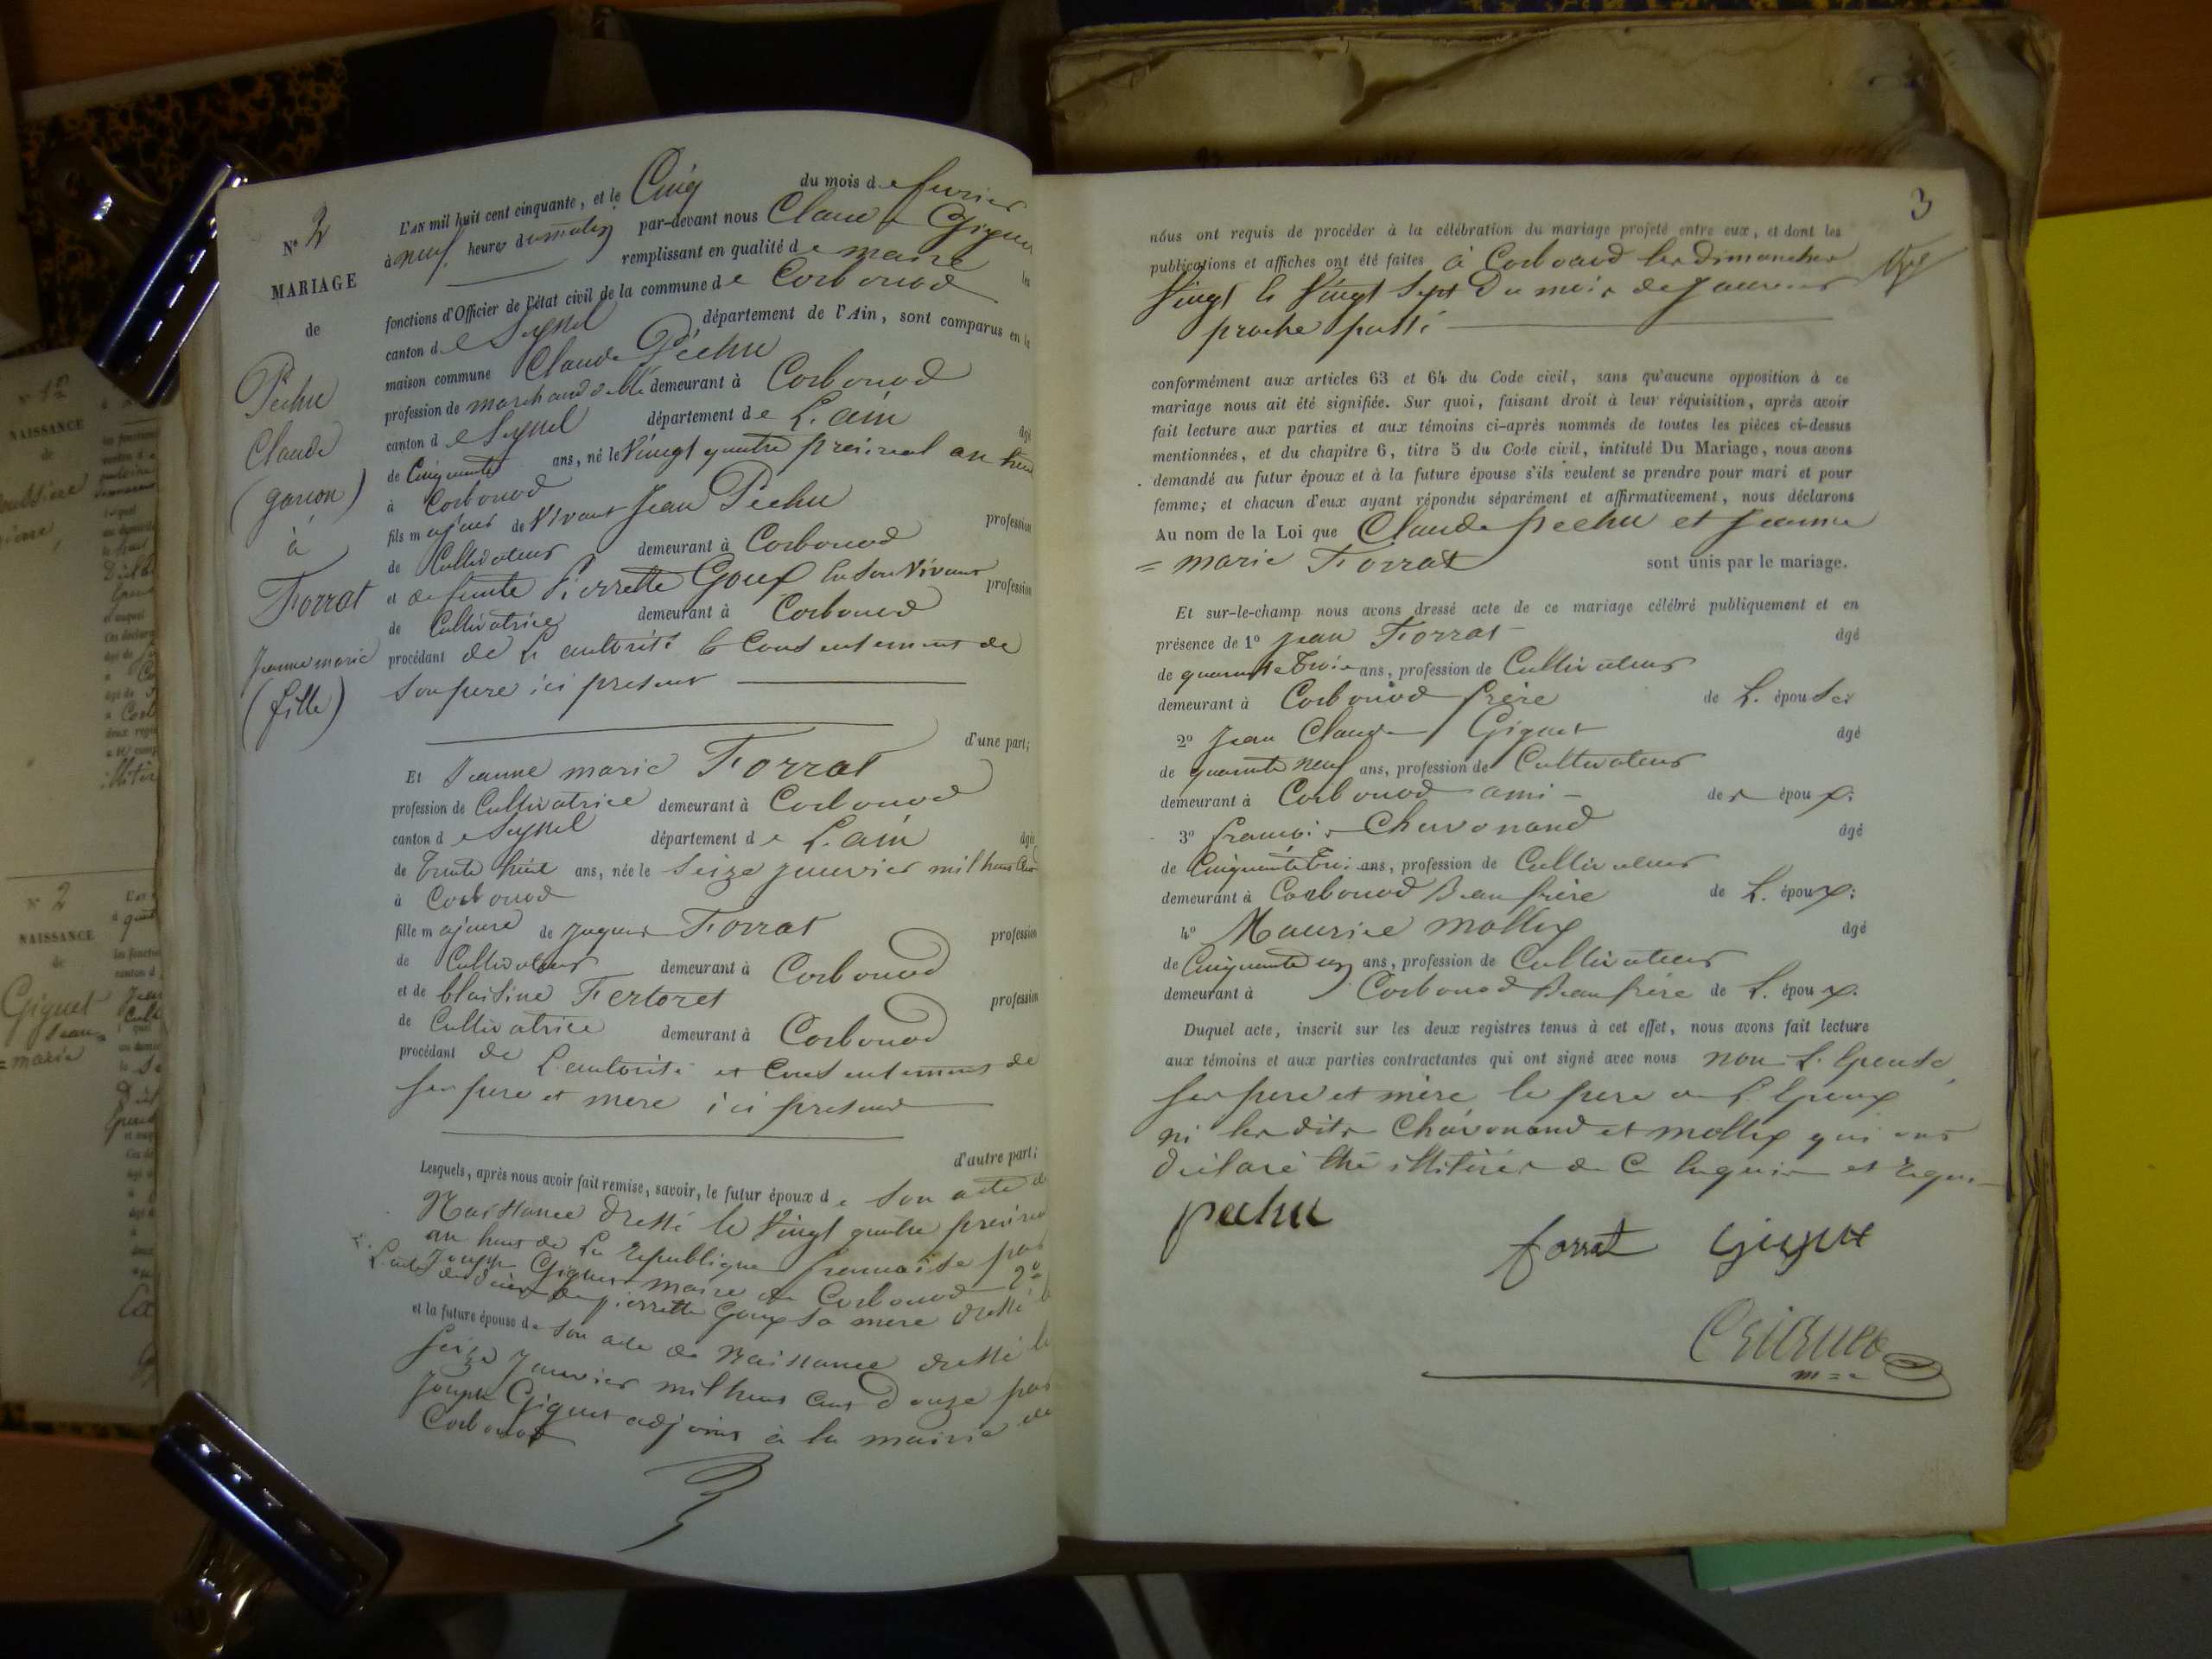 N° 2
MARIAGE
de
Péchu
Claude
(garson)
à
Forrat
Jeanne marie
(fille)
L'AN mil huit cent cinquante, et le Cinq du mois de fevrier
à neuf heures du matin par-devant nous Claude Giguet
remplissant en qualité de maire les
fonctions d'Officier de l'état civil de la commune de Corbonod
canton de Seyssel département de l'Ain, sont comparus en la
maison commune Claude Péchu
profession de marchand demeurant à Corbonod
canton de Seyssel département de L'ain âgé
de Cinquante ans, né le Vingt quatre preirial an huit
à Corbonod
fils majeur de Vivant Jean Péchu profession
de Cultivateur demeurant à Corbonod
et de feute Pierrette Goux En son Vivant profession
de Cultivatrice demeurant à Corbonod
procédant de L'autorité & Consentement de
son pere ici present
d'une part;
Et Jeanne marie Forrat
profession de Cultivatrice demeurant à Corbonod
canton de Seyssel département de L'ain âgée
de Trente huit ans, née le Seize janvier mil huit Cent
à Corbonod
fille majeure de jaques Forrat profession
de Cultivateur demeurant à Corbonod
et de blaisine Fertoret profession
de Cultivatrice demeurant à Corbonod
procédant de L'autorité et Consentement de
ses pere et mere ici present
d'autre part;
Lesquels, après nous avoir fait remise, savoir, le futur époux de son acte de
Naissance dressé le Vingt quatre preirial
an huit de La republique francaise par
Joseph Giguet maire de Corbonod 2°
L'acte de décès de pierrette Goux sa mere dressé le
et la future épouse de son acte de Naissance dressé le
seize janvier mil huit Cent douze par
joseph Giguet adjoint à la mairie de
Corbonod
3
nous ont requis de procéder à la célébration du mariage projeté entre eux, et dont les
publications et affiches ont été faites à Corbonod les dimanches
Vingt & Vingt Sept Du mois de Janvier
proche passé
conformément aux articles 63 et 64 du Code civil, sans qu'aucune opposition à ce
mariage nous ait été signifiée. Sur quoi, faisant droit à leur réquisition, après avoir
fait lecture aux parties et aux témoins ci-après nommés de toutes les pièces ci-dessus
mentionnées, et du chapitre 6, titre 5 du Code civil, intitulé Du Mariage, nous avons
demandé au futur époux et à la future épouse s'ils veulent se prendre pour mari et pour
femme; et chacun d'eux ayant répondu séparément et affirmativement, nous déclarons
Au nom de la Loi que Claude pechu et Jeanne
= marie Forrat sont unis par le mariage.
Et sur-le-champ nous avons dressé acte de ce mariage célébré publiquement et en
présence de 1° Jean Forrat âgé
de quarante Trois ans, profession de Cultivateur
demeurant à Corbonod frère de L'épouse;
2° Jean Claude Giguet âgé
de quarante neuf ans, profession de Cultivateur
demeurant à Corbonod ami des époux;
3° françois Chavonand âgé
de Cinquante Trois ans, profession de Cultivateur
demeurant à Corbonod Beau frère de L'époux;
4° Maurice mollex âgé
de Cinquante un ans, profession de Cultivateur
demeurant à Corbonod Beau frère de L'époux.
Duquel acte, inscrit sur les deux registres tenus à cet effet, nous avons fait lecture
aux témoins et aux parties contractantes qui ont signé avec nous non L'épouse,
ses pere et mère le pere de L'époux
ni les dits Chavonand et mollex qui ont
déclaré être illitérés de Ce Enquis et requis
pechu
forrat Giguet
Giguet